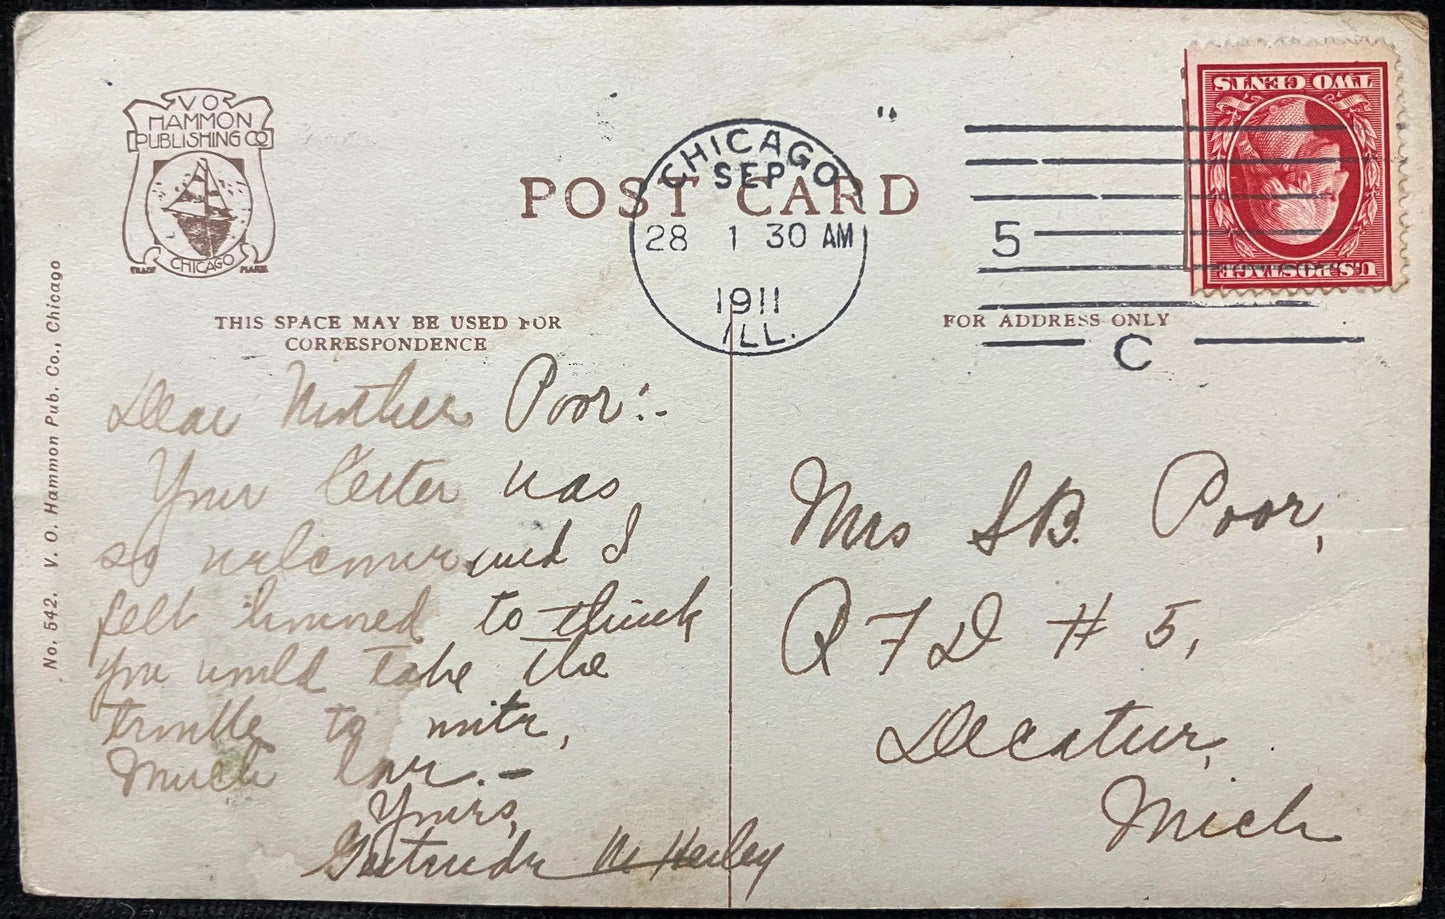 V O
HAMMON
PUBLISHING CO
CHICAGO
TRADE MARK
POST CARD
CHICAGO
SEP
28 1 30 AM
1911
ILL.
5
C
TWO CENTS
U.S. POSTAGE
THIS SPACE MAY BE USED FOR
CORRESPONDENCE
FOR ADDRESS ONLY
No. 542. V. O. Hammon Pub. Co., Chicago
Dear Mother Poor:-
Your letter was
so welcome and I
felt honored to think
you would take the
trouble to write,
Much love.-
Yours,
Gertrude
Mrs S B. Poor,
R F D # 5,
Decatur,
Mich